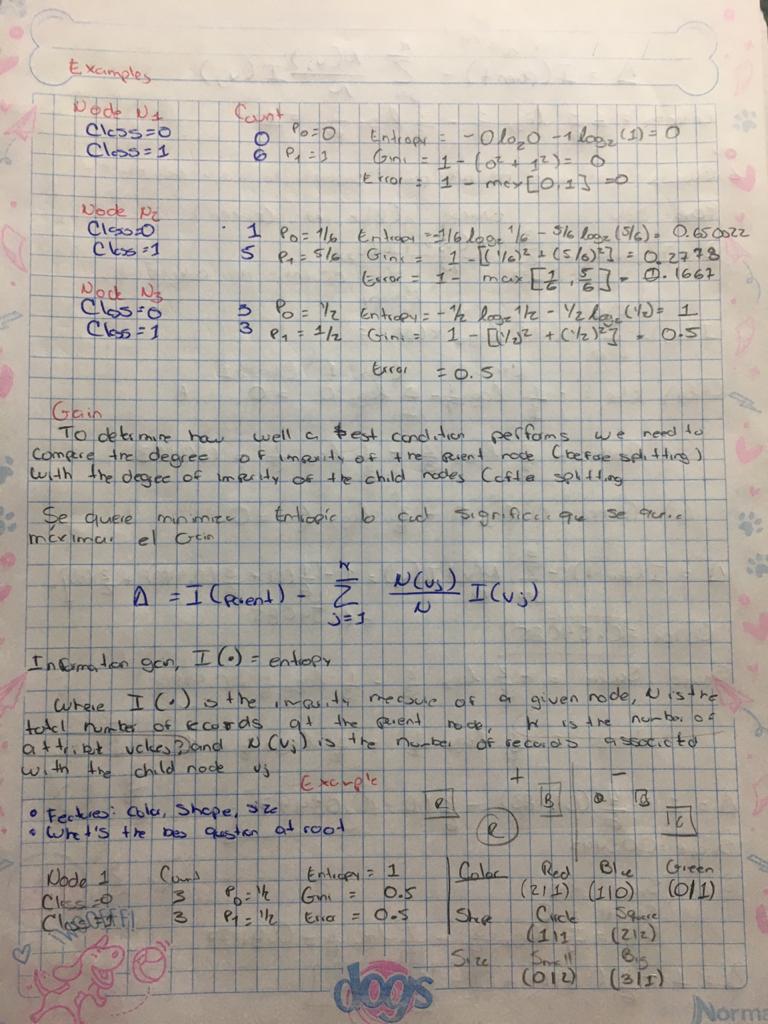 Examples
Node N1 Count
Class=0 0 P0=0 Entropy = -0log20 -1log2(1)=0
Class=1 6 P1=1 Gini = 1-(0²+1²)= 0
Error = 1 - max[0,1] =0
Node N2
Class=0 1 P0=1/6 Entropy=-1/6log21/6 - 5/6log2(5/6)= 0.650022
Class=1 5 P1=5/6 Gini= 1 -[(1/6)²+(5/6)²] = 0.2778
Error = 1- max[1/6, 5/6]= 0.1667
Node N3
Class=0 3 P0=1/2 Entropy=-1/2 log21/2 - 1/2log2(1/2)= 1
Class=1 3 P1=1/2 Gini= 1 - [(1/2)²+(1/2)²] = 0.5
Error = 0.5
Gain
To determine how well a test condition performs we need to
compare the degree of impurity of the parent node (before splitting)
with the degree of impurity of the child nodes (after splitting
Se quiere minimizar Entropia lo cual significa que se quiere
maximar el Gain
Δ = I(parent) - k Σ j=1 N(vj)/N I(vj)
Information gain, I(·) = entropy
Where I(·) is the impurity measure of a given node, N is the
total number of records at the parent node, k is the number of
attribute values and N(vj) is the number of records associated
with the child node vj
Example + -
• Features: Color, shape, size
• What's the best question at root
R R B B
Node 1 Count Entropy = 1 Color Red Blue Green
Class=0 3 P0=1/2 Gini = 0.5 (2|1) (1|0) (0|1)
Class=1 3 P1=1/2 Error = 0.5 Shape Circle Square
(1|1 (2|2)
Size Small Big
(0|2) (3|1)
dogs
Norma